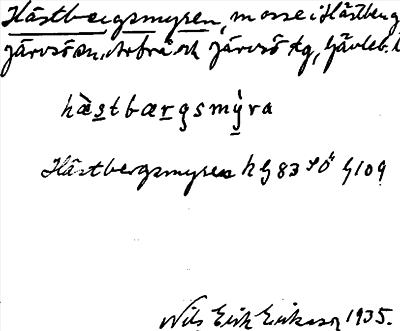 Hästbergsmyren, mosse i Hästberg
Järvsö sn, Arbrå och Järvsö tg, Gävleb. l
hæstbærgsmýra
Hästbergsmyren hG 83 SÖ G 109
Nils Erik Eriksson 1935.